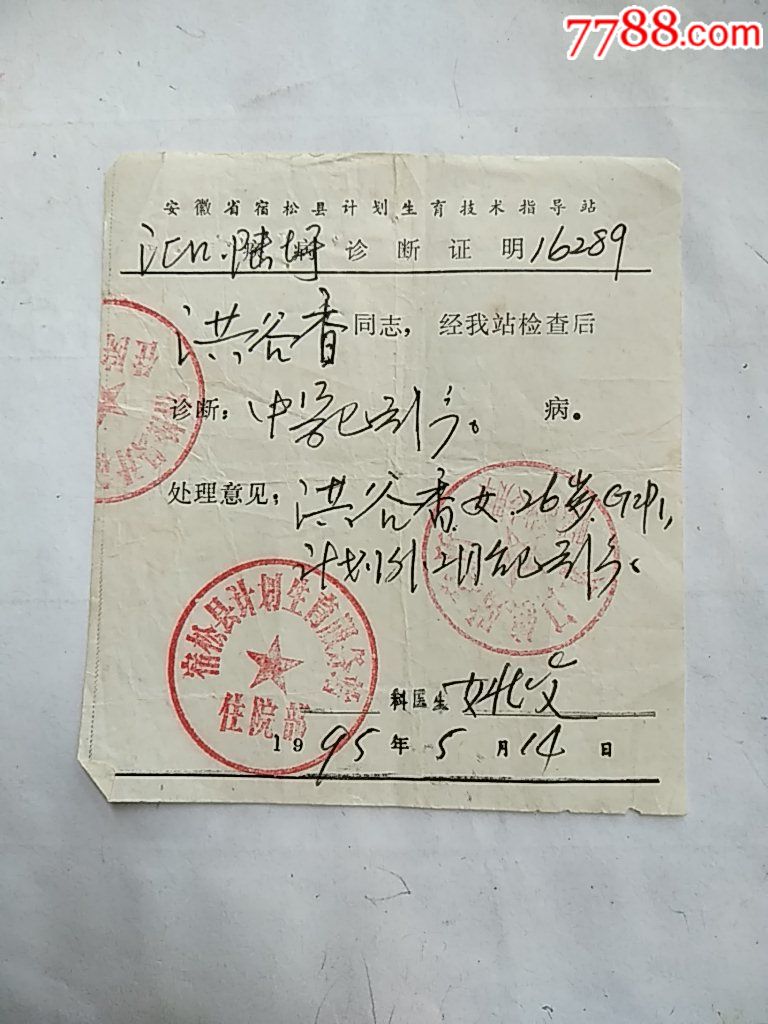 7788.com
安徽省宿松县计划生育技术指导站
诊断证明 16289
洪谷香同志，经我站检查后
诊断：中孕已引产。病。
处理意见：洪谷香，女，26岁，G2P1，
计划外，月，已引产。
宿松县计划生育服务站
住院部
科医生
1995年5月14日